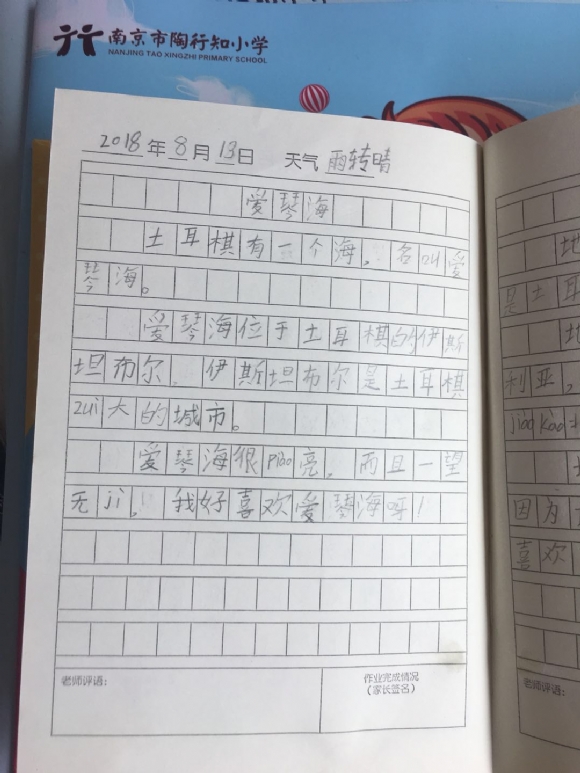 南京市陶行知小学
NANJING TAO XINGZHI PRIMARY SCHOOL
2018年8月13日 天气 雨转晴
爱琴海
土耳棋有一个海，名叫爱
琴海。
爱琴海位于土耳棋的伊斯
坦布尔，伊斯坦布尔是土耳棋
zui大的城市。
爱琴海很piao亮，而且一望
无ji，我好喜欢爱琴海呀！
老师评语：
作业完成情况
（家长签名）
地
是土耳
地
利亚，
jiao kao
因为
喜欢
老师评语：